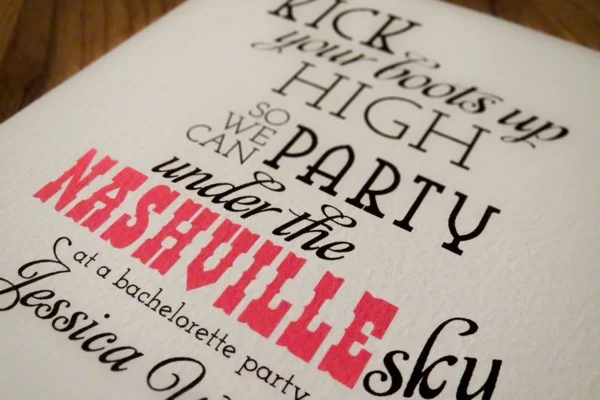 KICK
your boots up
HIGH
SO
WE
CAN
PARTY
under the
NASHVILLE sky
at a bachelorette party
Jessica